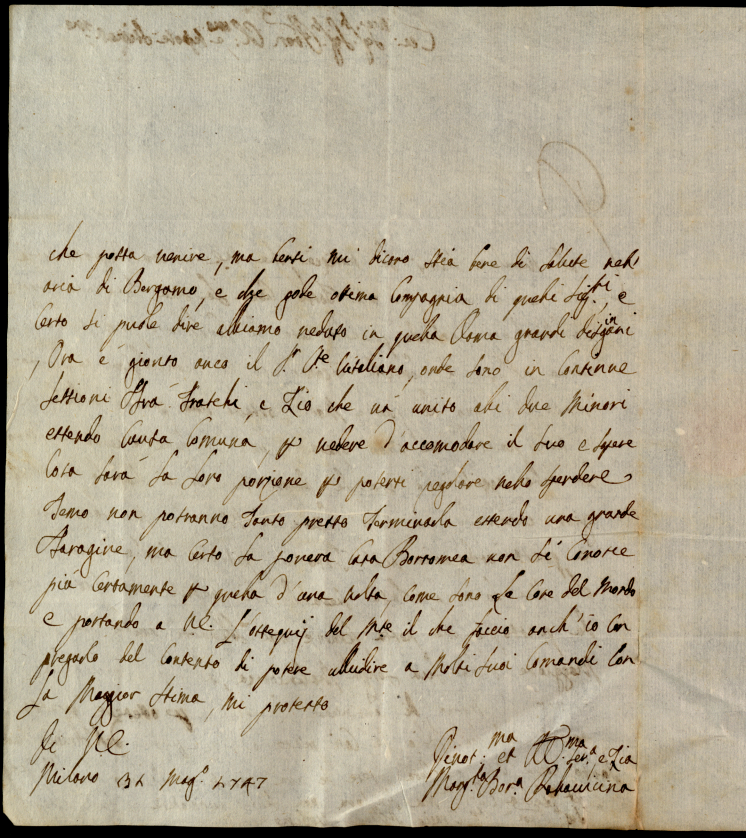 che possa venire, ma bensi mi dicono stia bene di salute nell'
aria di Bergamo, e che gode ottima Compagnia di quelli Sig.ri, e
Certo si puole dire abbiamo veduto in quella Dama grandi disinganni
, Ora è gionto anco il S.r C.te, onde sono in Continue
sessioni Frà Fratelli, e Zio che và unito alli due Minori
essendo Causa Comuna, per vedere d'accomodare il suo e sapere
Cosa sarà la loro porzione per potersi regolare nello spendere
Temo non potranno tanto presto Terminarla essendo una grande
Faragine, ma Certo la povera Casa Borromea non si Conosce
più Certamente per quella d'una volta, come sono Le Cose del Mondo
e portando a V.E. L'ossequij del M.se il che faccio anch'io Con
pregarlo del Contento di potere ubbidire a Molti suoi Comandi Con
La Maggior stima, mi protesto
Di V.E.
Milano 31 Mag.o 1747
Divot.ma et Obb.ma Ser.a e Zia
Marg.ta Bor.a Pallavicina